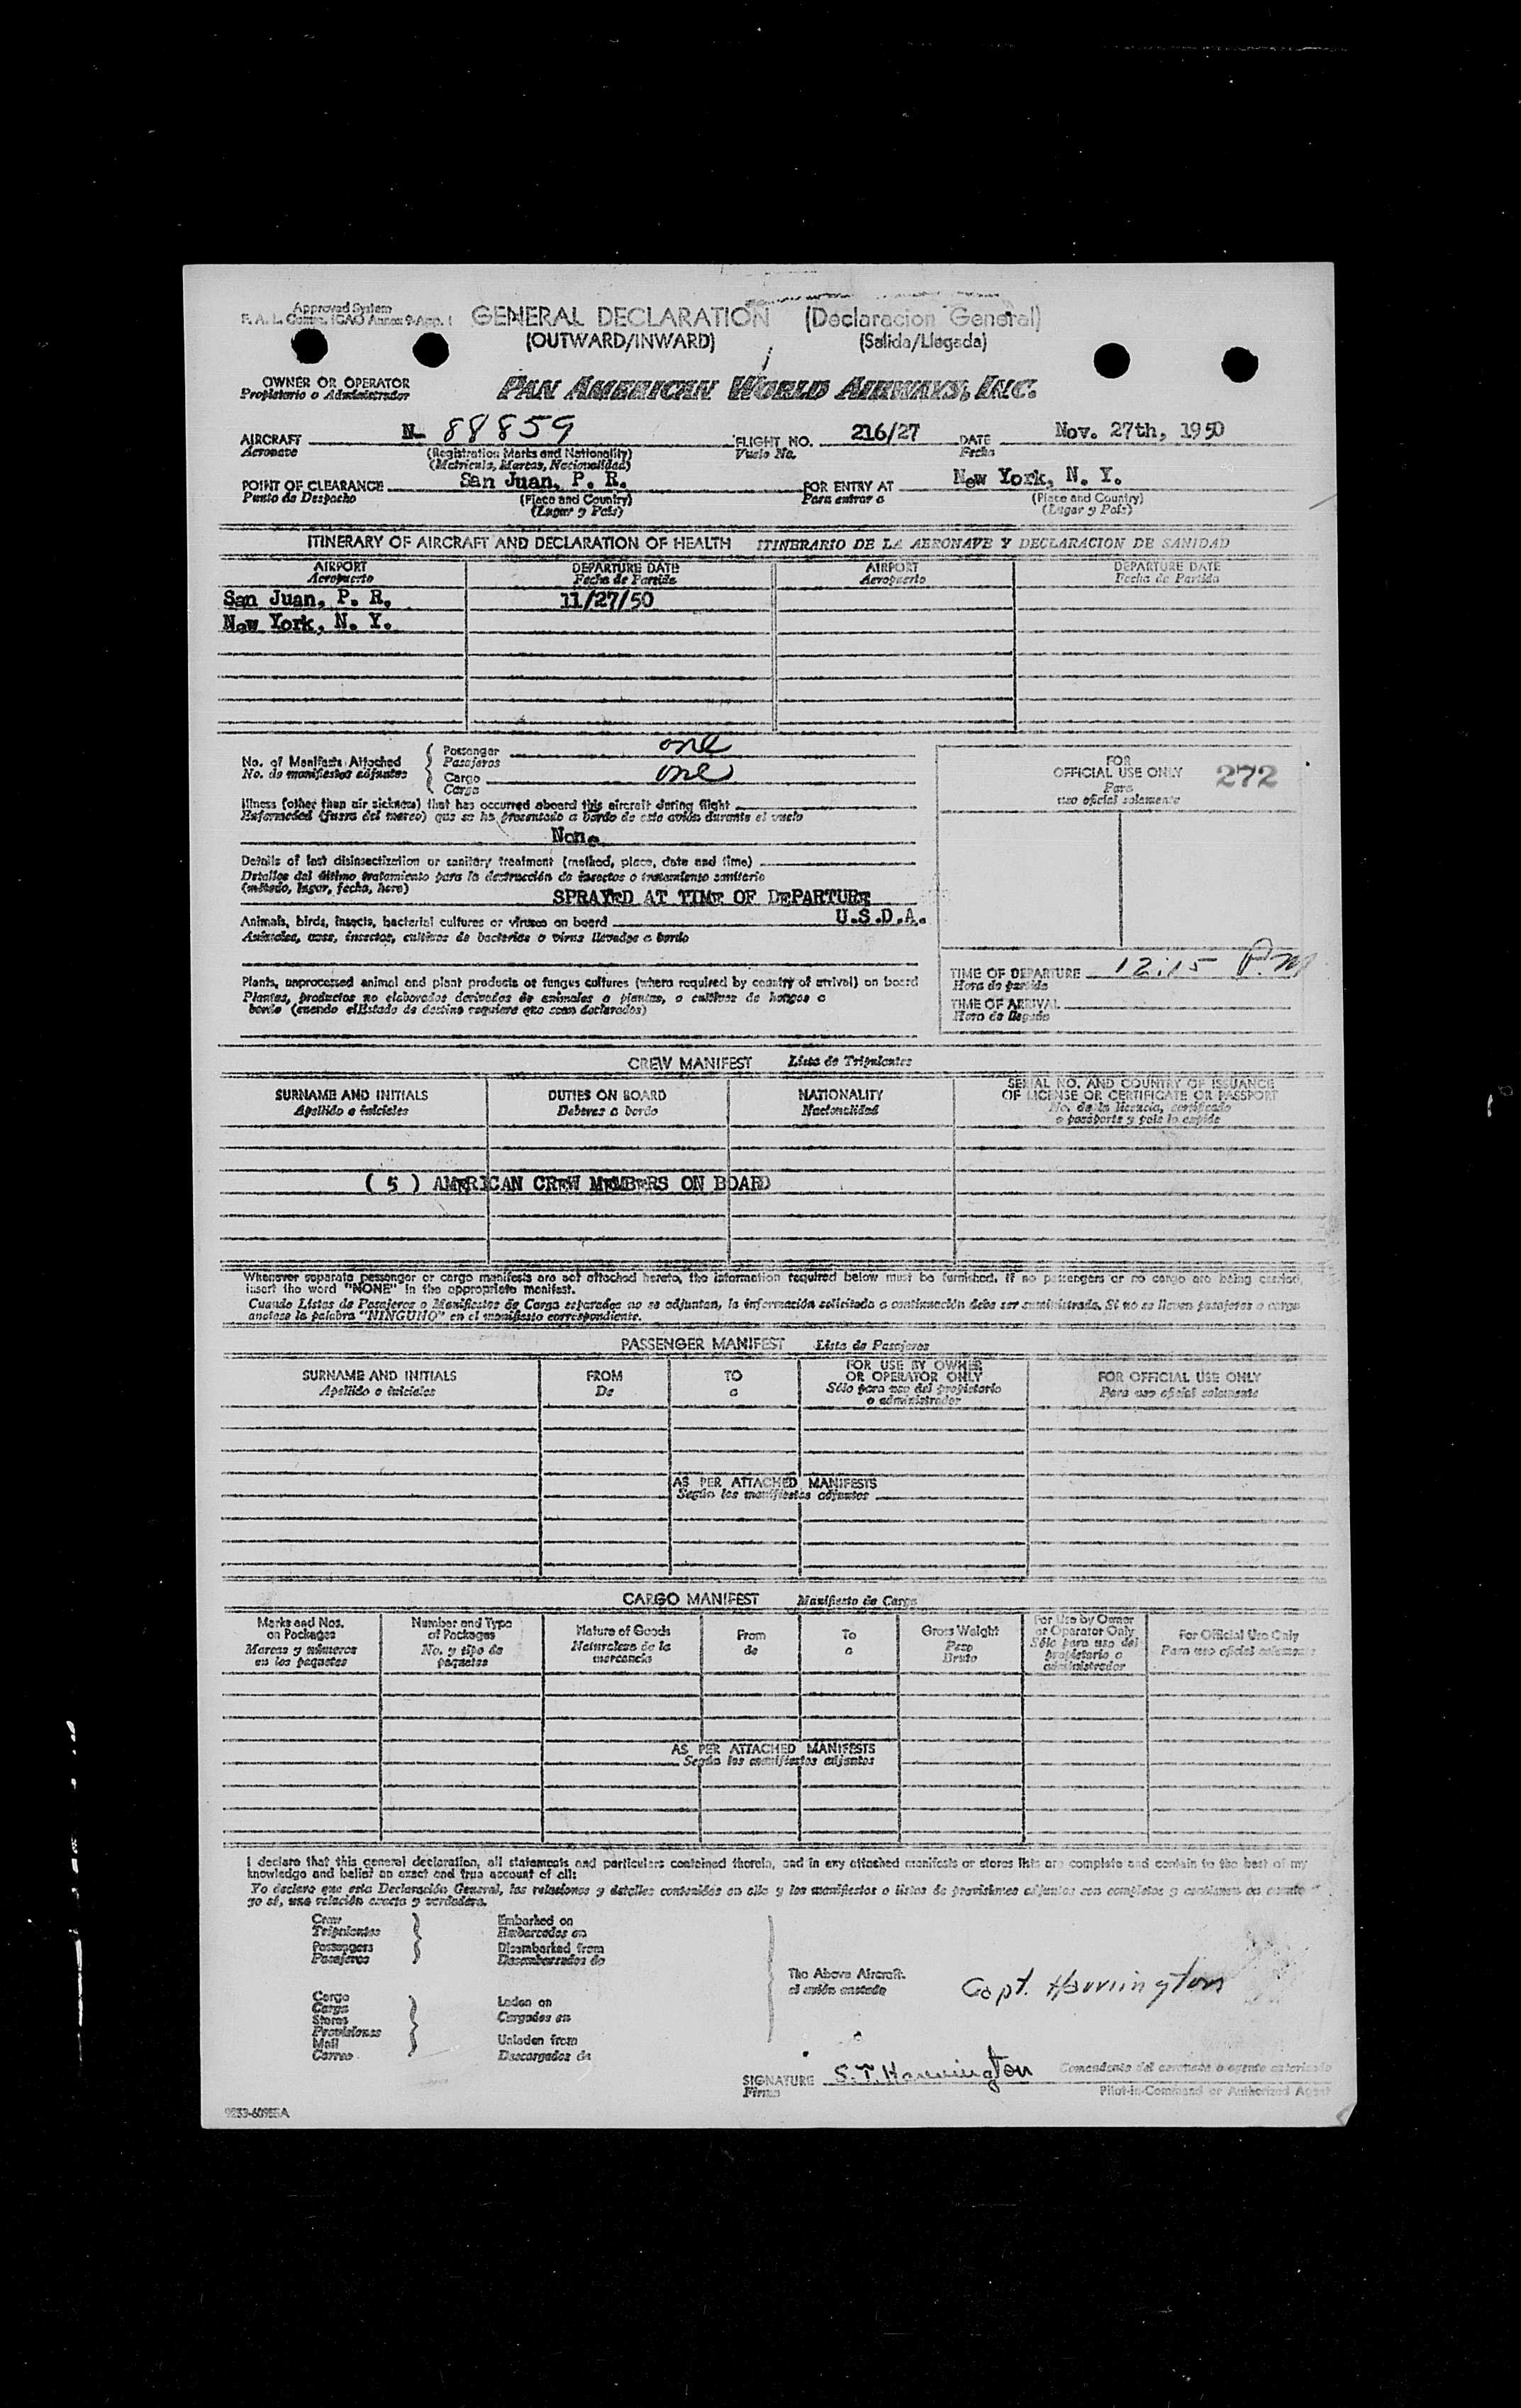 Approved System
F. A. L. Comte. ICAO Annex 9-App. 1
GENERAL DECLARATION (Declaracion General)
(OUTWARD/INWARD) (Salida/Llegada)
OWNER OR OPERATOR
Propietario o Administrador
PAN AMERICAN WORLD AIRWAYS, INC.
AIRCRAFT N- 88859 FLIGHT NO. 216/27 DATE Nov. 27th, 1950
Aeronave (Registration Marks and Nationality) Vuelo No. Fecha
(Matricula, Marcas, Nacionalidad)
POINT OF CLEARANCE San Juan, P. R. FOR ENTRY AT New York, N. Y.
Punto de Despacho (Place and Country) Para entrar a (Place and Country)
(Lugar y País) (Lugar y País)
ITINERARY OF AIRCRAFT AND DECLARATION OF HEALTH ITINERARIO DE LA AERONAVE Y DECLARACION DE SANIDAD
AIRPORT DEPARTURE DATE AIRPORT DEPARTURE DATE
Aeropuerto Fecha de Partida Aeropuerto Fecha de Partida
San Juan, P. R. 11/27/50
New York, N. Y.
No. of Manifests Attached
No. de manifiestos adjuntos
Passenger one
Pasajeros
Cargo one
Carga
FOR
OFFICIAL USE ONLY 272
Para
uso oficial solamente
Illness (other than air sickness) that has occurred aboard this aircraft during flight
Enfermedad (fuera del mareo) que se ha presentado a bordo de este avión durante el vuelo
None
Details of last disinsectization or sanitary treatment (method, place, date and time)
Detalles del último tratamiento para la destrucción de insectos o tratamiento sanitario
(método, lugar, fecha, hora)
SPRAYED AT TIME OF DEPARTURE
U.S.D.A.
Animals, birds, insects, bacterial cultures or viruses on board
Animales, aves, insectos, cultivos de bacterias o virus llevados a bordo
Plants, unprocessed animal and plant products or fungus cultures (where required by country of arrival) on board
Plantas, productos no elaborados derivados de animales o plantas, o cultivos de hongos a
bordo (cuando el Estado de destino requiere que sean declarados)
TIME OF DEPARTURE 12:15 P.M
Hora de partida
TIME OF ARRIVAL
Hora de llegada
CREW MANIFEST Lista de Tripulantes
SURNAME AND INITIALS DUTIES ON BOARD NATIONALITY SERIAL NO. AND COUNTRY OF ISSUANCE
OF LICENSE OR CERTIFICATE OR PASSPORT
Apellido e iniciales Deberes a bordo Nacionalidad No. de la licencia, certificado
o pasaporte y pais lo expide
( 5 ) AMERICAN CREW MEMBERS ON BOARD
Whenever separate passenger or cargo manifests are not attached hereto, the information required below must be furnished. If no passengers or no cargo are being carried,
insert the word "NONE" in the appropriate manifest.
Cuando Listas de Pasajeros o Manifiestos de Carga separados no se adjuntan, la información solicitada a continuación debe ser suministrada. Si no se llevan pasajeros o carga
anotese la palabra "NINGUNO" en el manifiesto correspondiente.
PASSENGER MANIFEST Lista de Pasajeros
SURNAME AND INITIALS FROM TO FOR USE BY OWNER
OR OPERATOR ONLY FOR OFFICIAL USE ONLY
Apellido e iniciales De a Sólo para uso del propietario
o administrador Para uso oficial solamente
AS PER ATTACHED MANIFESTS
Según los manifiestos adjuntos
CARGO MANIFEST Manifiesto de Carga
Marks and Nos.
on Packages
Marcas y números
en los paquetes
Number and Type
of Packages
No. y tipo de
paquetes
Nature of Goods
Naturaleza de la
mercancía
From
de
To
a
Gross Weight
Peso
Bruto
For Use by Owner
or Operator Only
Sólo para uso del
propietario o
administrador
For Official Use Only
Para uso oficial solamente
AS PER ATTACHED MANIFESTS
Según los manifiestos adjuntos
I declare that this general declaration, all statements and particulars contained therein, and in any attached manifests or stores lists are complete and contain to the best of my
knowledge and belief an exact and true account of all:
Yo declaro que esta Declaración General, las relaciones y detalles contenidos en ella y los manifiestos o listas de provisiones adjuntos son completos y contienen en cuanto
yo sé, una relación exacta y verdadera.
Crew
Tripulantes
Passengers
Pasajeros
Embarked on
Embarcados en
Disembarked from
Desembarcados de
Cargo
Carga
Stores
Provisiones
Mail
Correo
Laden on
Cargados en
Unladen from
Descargados de
The Above Aircraft.
el avión anotado
Capt. Harrington
SIGNATURE S. T. Harrington
Firma
Comandante del aeronave o agente autorizado
Pilot-in-Command or Authorized Agent